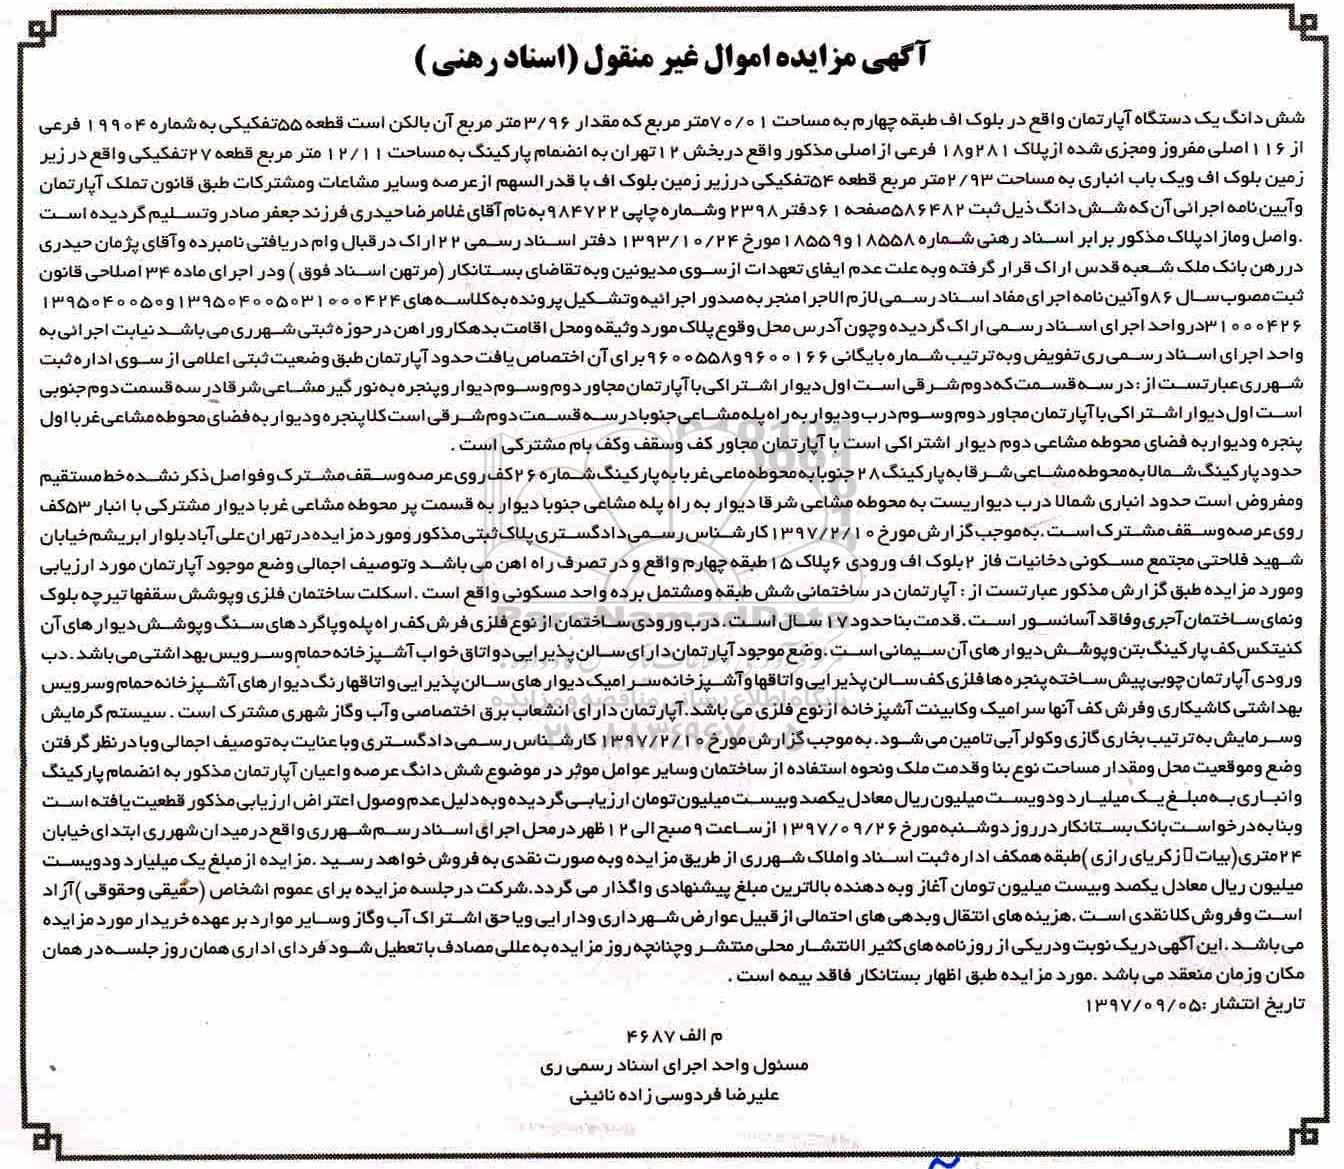 آگهی مزایده اموال غیر منقول (اسناد رهنی )
شش دانگ یک دستگاه آپارتمان واقع در بلوک اف طبقه چهارم به مساحت ۷۰/۰۱متر مربع که مقدار ۳/۹۶ متر مربع آن بالکن است قطعه ۵۵تفکیکی به شماره ۱۹۹۰۴ فرعی
از ۱۱۶اصلی مفروز ومجزی شده از پلاک ۲۸۱و۱۸ فرعی از اصلی مذکور واقع در بخش ۱۲تهران به انضمام پارکینگ به مساحت ۱۲/۱۱ متر مربع قطعه ۲۷تفکیکی واقع در زیر
زمین بلوک اف ویک باب انباری به مساحت ۲/۹۳متر مربع قطعه ۵۴تفکیکی درزیر زمین بلوک اف با قدرالسهم ازعرصه وسایر مشاعات ومشترکات طبق قانون تملک آپارتمان
وآیین نامه اجرائی آن که شش دانگ ذیل ثبت ۵۸۶۴۸۲صفحه ۶۱دفتر ۲۳۹۸ وشماره چاپی ۹۸۴۷۲۲به نام آقای غلامرضا حیدری فرزند جعفر صادر وتسلیم گردیده است
.واصل ومازاد پلاک مذکور برابر اسناد رهنی شماره ۱۸۵۵۸و۱۸۵۵۹مورخ ۱۳۹۳/۱۰/۲۴ دفتر اسناد رسمی ۲۲اراک در قبال وام دریافتی نامبرده وآقای پژمان حیدری
دررهن بانک ملک شعبه قدس اراک قرار گرفته وبه علت عدم ایفای تعهدات ازسوی مدیونین وبه تقاضای بستانکار (مرتهن اسناد فوق ) ودر اجرای ماده ۳۴ اصلاحی قانون
ثبت مصوب سال ۸۶وآئین نامه اجرای مفاد اسناد رسمی لازم الاجرا منجر به صدور اجرائیه وتشکیل پرونده به کلاسه های ۱۳۹۵۰۴۰۰۵۰۳۱۰۰۰۴۲۴و۱۳۹۵۰۴۰۰۵۰
۳۱۰۰۰۴۲۶درواحد اجرای اسناد رسمی اراک گردیده وچون آدرس محل وقوع پلاک مورد وثیقه ومحل اقامت بدهکار وراهن درحوزه ثبتی شهرری می باشد نیابت اجرائی به
واحد اجرای اسناد رسمی ری تفویض وبه ترتیب شماره بایگانی ۹۶۰۰۱۶۶و۹۶۰۰۵۵۸برای آن اختصاص یافت حدود آپارتمان طبق وضعیت ثبتی اعلامی از سوی اداره ثبت
شهرری عبارتست از : در سه قسمت که دوم شرقی است اول دیوار اشتراکی با آپارتمان مجاور دوم وسوم دیوار وپنجره به نور گیر مشاعی شرقا در سه قسمت دوم جنوبی
است اول دیوار اشتراکی با آپارتمان مجاور دوم وسوم درب ودیوار به راه پله مشاعی جنوبا درسه قسمت دوم شرقی است کلا پنجره ودیوار به فضای محوطه مشاعی غربا اول
پنجره ودیواربه فضای محوطه مشاعی دوم دیوار اشتراکی است با آپارتمان مجاور کف وسقف وکف بام مشترکی است .
حدود پارکینگ شمالا به محوطه مشاعی شرقا به پارکینگ ۲۸جنوبا به محوطه ماعی غربا به پارکینگ شماره ۲۶کف روی عرصه وسقف مشترک وفواصل ذکر نشده خط مستقیم
ومفروض است حدود انباری شمالا درب دیواریست به محوطه مشاعی شرقا دیوار به راه پله مشاعی جنوبا دیوار به قسمت پر محوطه مشاعی غربا دیوار مشترکی با انبار ۵۳کف
روی عرصه وسقف مشترک است .به موجب گزارش مورخ ۱۳۹۷/۲/۱۰کارشناس رسمی دادگستری پلاک ثبتی مذکور ومورد مزایده درتهران علی آباد بلوار ابریشم خیابان
شهید فلاحتی مجتمع مسکونی دخانیات فاز ۲بلوک اف ورودی ۶پلاک ۱۵طبقه چهارم واقع و در تصرف راه اهن می باشد وتوصیف اجمالی وضع موجود آپارتمان مورد ارزیابی
ومورد مزایده طبق گزارش مذکور عبارتست از : آپارتمان در ساختمانی شش طبقه ومشتمل برده واحد مسکونی واقع است .اسکلت ساختمان فلزی وپوشش سقفها تیرچه بلوک
ونمای ساختمان آجری وفاقد آسانسور است .قدمت بنا حدود ۱۷ سال است .درب ورودی ساختمان از نوع فلزی فرش کف راه پله وپاگرد های سنگ وپوشش دیوار های آن
کنیتکس کف پارکینگ بتن وپوشش دیوار های آن سیمانی است .وضع موجود آپارتمان دارای سالن پذیرایی دواتاق خواب آشپزخانه حمام وسرویس بهداشتی می باشد .دب
ورودی آپارتمان چوبی پیش ساخته پنجره ها فلزی کف سالن پذیرایی واتاقها وآشپزخانه سرامیک دیوار های سالن پذیرایی واتاقها رنگ دیوارهای آشپزخانه حمام وسرویس
بهداشتی کاشیکاری وفرش کف آنها سرامیک وکابینت آشپزخانه ازنوع فلزی می باشد.آپارتمان دارای انشعاب برق اختصاصی وآب وگاز شهری مشترک است . سیستم گرمایش
وسرمایش به ترتیب بخاری گازی وکولر آبی تامین می شود. به موجب گزارش مورخ ۱۳۹۷/۲/۱۰ کارشناس رسمی دادگستری وبا عنایت به توصیف اجمالی وبا در نظر گرفتن
وضع وموقعیت محل ومقدار مساحت نوع بنا وقدمت ملک ونحوه استفاده از ساختمان وسایر عوامل موثر در موضوع شش دانگ عرصه واعیان آپارتمان مذکور به انضمام پارکینگ
وانباری به مبلغ یک میلیارد ودویست میلیون ریال معادل یکصد وبیست میلیون تومان ارزیابی گردیده وبه دلیل عدم وصول اعتراض ارزیابی مذکور قطعیت یافته است
وبنا به درخواست بانک بستانکار درروز دوشنبه مورخ ۱۳۹۷/۰۹/۲۶ از ساعت ۹صبح الی ۱۲ظهر در محل اجرای اسناد رسم شهرری واقع درمیدان شهرری ابتدای خیابان
۲۴متری(بیات زکریای رازی )طبقه همکف اداره ثبت اسناد واملاک شهرری از طریق مزایده وبه صورت نقدی به فروش خواهد رسید .مزایده از مبلغ یک میلیارد ودویست
میلیون ریال معادل یکصد وبیست میلیون تومان آغاز وبه دهنده بالاترین مبلغ پیشنهادی واگذار می گردد.شرکت درجلسه مزایده برای عموم اشخاص (حقیقی وحقوقی )آزاد
است وفروش کلا نقدی است .هزینه های انتقال وبدهی های احتمالی از قبیل عوارض شهرداری ودارایی ویا حق اشتراک آب وگاز وسایر موارد بر عهده خریدار مورد مزایده
می باشد .این آگهی دریک نوبت ودریکی از روزنامه های کثیر الانتشار محلی منتشر وچنانچه روز مزایده به عللی مصادف با تعطیل شود فردای اداری همان روز جلسه در همان
مکان وزمان منعقد می باشد .مورد مزایده طبق اظهار بستانکار فاقد بیمه است .
تاریخ انتشار :۱۳۹۷/۰۹/۰۵
م الف ۴۶۸۷
مسئول واحد اجرای اسناد رسمی ری
علیرضا فردوسی زاده نائینی
ParsNamadData
پایگاه اطلاع رسانی مناقصه و مزایده
۰۲۱-۸۸۳۴۹۶۷۰-۵